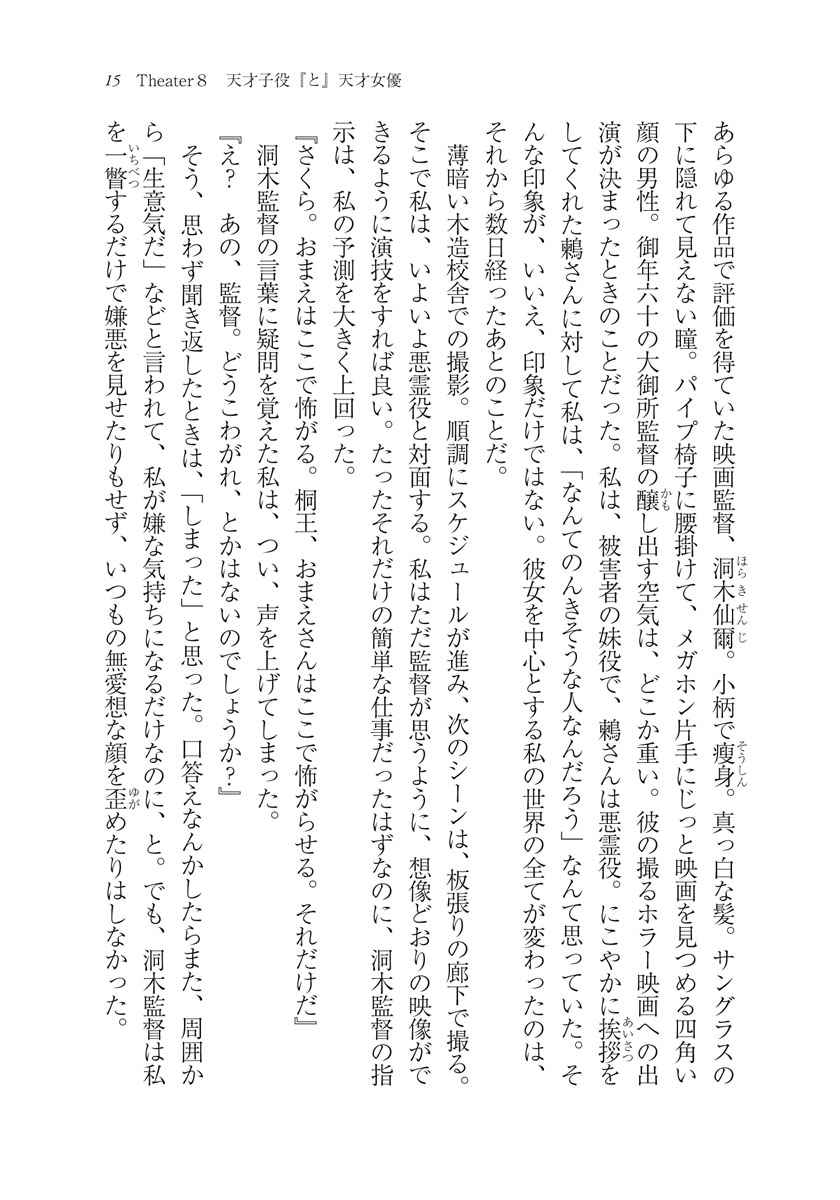 15　Theater 8　天才子役『と』天才女優
あらゆる作品で評価を得ていた映画監督、洞木仙爾。小柄で痩身。真っ白な髪。サングラスの
下に隠れて見えない瞳。パイプ椅子に腰掛けて、メガホン片手にじっと映画を見つめる四角い
顔の男性。御年六十の大御所監督の醸し出す空気は、どこか重い。彼の撮るホラー映画への出
演が決まったときのことだった。私は、被害者の妹役で、鶫さんは悪霊役。にこやかに挨拶を
してくれた鶫さんに対して私は、「なんてのんきそうな人なんだろう」なんて思っていた。そ
んな印象が、いいえ、印象だけではない。彼女を中心とする私の世界の全てが変わったのは、
それから数日経ったあとのことだ。
　薄暗い木造校舎での撮影。順調にスケジュールが進み、次のシーンは、板張りの廊下で撮る。
そこで私は、いよいよ悪霊役と対面する。私はただ監督が思うように、想像どおりの映像がで
きるように演技をすれば良い。たったそれだけの簡単な仕事だったはずなのに、洞木監督の指
示は、私の予測を大きく上回った。
『さくら。おまえはここで怖がる。桐王、おまえさんはここで怖がらせる。それだけだ』
　洞木監督の言葉に疑問を覚えた私は、つい、声を上げてしまった。
『え？　あの、監督。どうこわがれ、とかはないのでしょうか？』
　そう、思わず聞き返したときは、「しまった」と思った。口答えなんかしたらまた、周囲か
ら「生意気だ」などと言われて、私が嫌な気持ちになるだけなのに、と。でも、洞木監督は私
を一瞥するだけで嫌悪を見せたりもせず、いつもの無愛想な顔を歪めたりはしなかった。